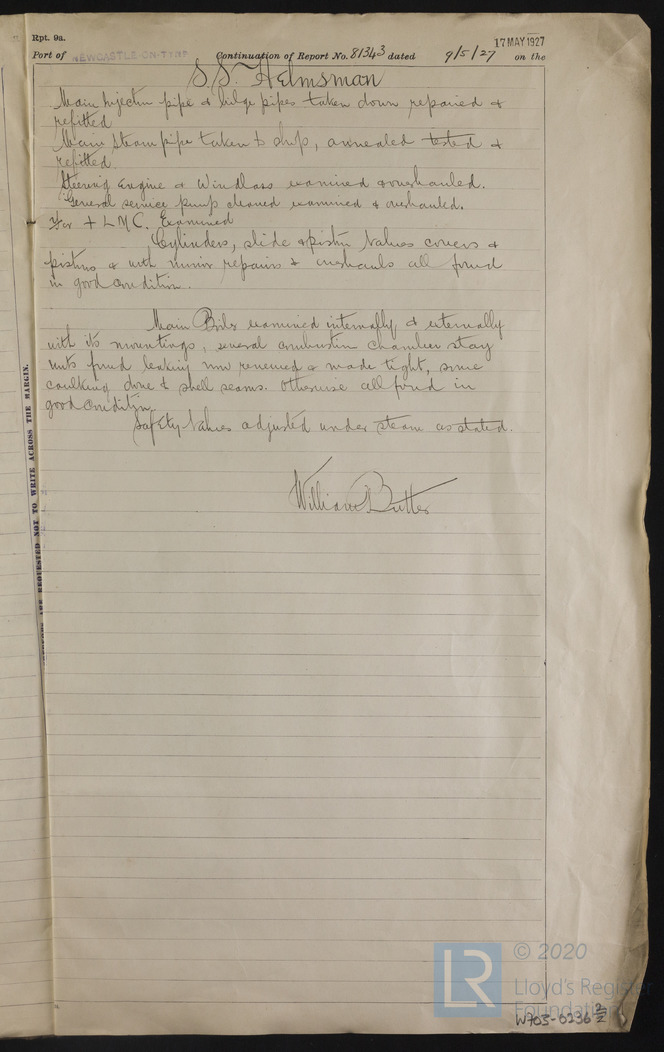 Rpt. 9a.
17 MAY 1927
Port of NEWCASTLE-ON-TYNE Continuation of Report No. 81343 dated 9/5/27 on the
S.S. Helmsman
Main Injection pipe & bilge pipes taken down repaired &
refitted
Main Steam pipe taken to shop, annealed tested &
refitted
Steering Engine & Windlass examined & overhauled.
General service pump cleaned examined & overhauled.
For + LMC. Examined
Cylinders, slide & piston valves covers &
pistons & with minor repairs & overhauls all found
in good condition.
Main Boiler examined internally & externally
with its mountings, several combustion chamber stay
nuts found leaking now renewed & made tight, some
caulking done to shell seams. Otherwise all found in
good condition.
Safety Valves adjusted under steam as stated.
William Butler
ARE REQUESTED NOT TO WRITE ACROSS THE MARGIN.
LR
© 2020
Lloyd's Register
Foundation
W703-0236 2/2